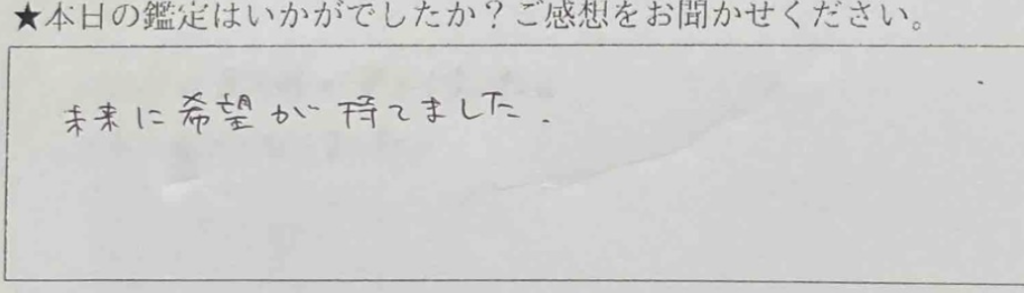 ★本日の鑑定はいかがでしたか？ご感想をお聞かせください。
未来に希望が持てました.